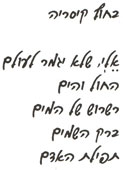 בחוף קיסריה
אֵלִי, שלא יגמר לעולם
החול והים
רשרוש של המים
ברק השמים
תפילת האדם